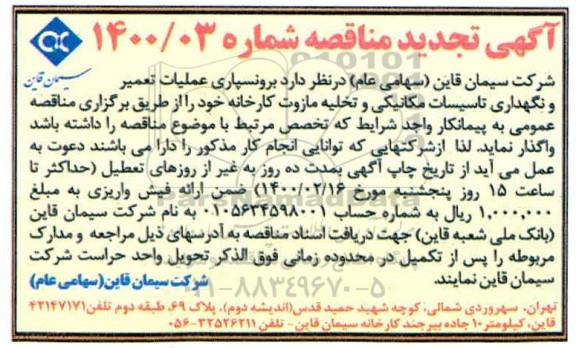 آگهی تجدید مناقصه شماره ۱۴۰۰/۰۳
سیمان قاین
شرکت سیمان قاین (سهامی عام) درنظر دارد برونسپاری عملیات تعمیر
و نگهداری تاسیسات مکانیکی و تخلیه مازوت کارخانه خود را از طریق برگزاری مناقصه
عمومی به پیمانکار واجد شرایط که تخصص مرتبط با موضوع مناقصه را داشته باشد
واگذار نماید. لذا ازشرکتهایی که توانایی انجام کار مذکور را دارا می باشند دعوت به
عمل می آید از تاریخ چاپ آگهی بمدت ده روز به غیر از روزهای تعطیل (حداکثر تا
ساعت ۱۵ روز پنجشنبه مورخ ۱۴۰۰/۰۲/۱۶) ضمن ارائه فیش واریزی به مبلغ
۱,۰۰۰,۰۰۰ ریال به شماره حساب ۰۱۰۵۶۳۴۵۹۸۰۰۱ به نام شرکت سیمان قاین
(بانک ملی شعبه قاین) جهت دریافت اسناد مناقصه به آدرسهای ذیل مراجعه و مدارک
مربوطه را پس از تکمیل در محدوده زمانی فوق الذکر تحویل واحد حراست شرکت
سیمان قاین نمایند.
شرکت سیمان قاین(سهامی عام)
تهران، سهروردی شمالی: کوچه شهید حمید قدس(اندیشه دوم)، پلاک ۶۹، طبقه دوم تلفن:۴۲۱۴۷۱۷۱
قاین، کیلومتر۱۰ جاده بیرجند کارخانه سیمان قاین- تلفن ۳۲۵۲۶۲۱۱-۰۵۶
ParsNamadData
۰۲۱-۸۸۳۴۹۶۷۰-۵